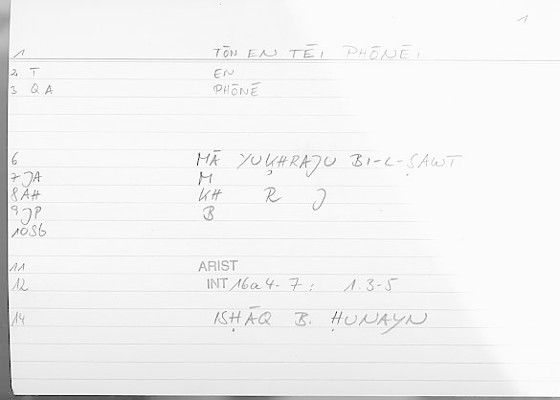 1
1 TŌN EN TĒI PHŌNĒI
2 T EN
3 QA PHŌNĒ
6 MĀ YUKHRAJU BI-L-ṢAWT
7 JA M
8 AH KH R J
9 JP B
10 SB
11 ARIST
12 INT 16a 4-7 : 1.3-5
14 ISḤĀQ B. ḤUNAYN